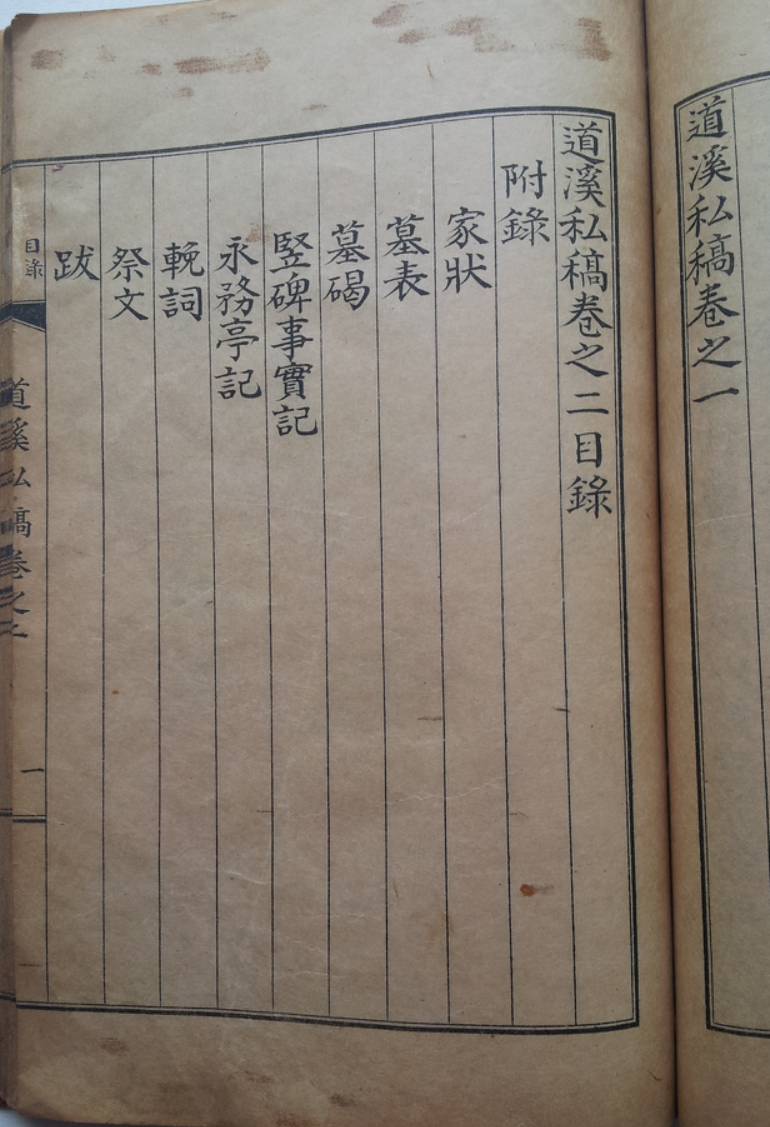 道溪私稿卷之一
道溪私稿卷之二目錄
附錄
家狀
墓表
墓碣
竪碑事實記
永務亭記
輓詞
祭文
跋
目錄
道溪私稿卷之二
一